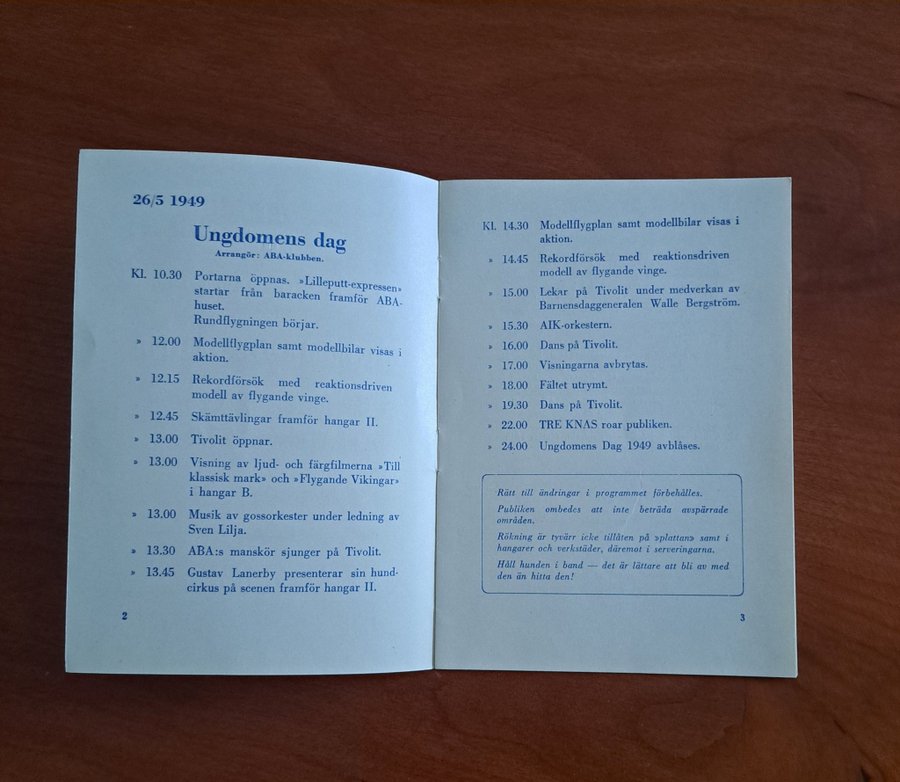 26/5 1949
Ungdomens dag
Arrangör: ABA-klubben.
Kl. 10.30 Portarna öppnas. »Lilleputt-expressen»
startar från baracken framför ABA-
huset.
Rundflygningen börjar.
» 12.00 Modellflygplan samt modellbilar visas i
aktion.
» 12.15 Rekordförsök med reaktionsdriven
modell av flygande vinge.
» 12.45 Skämttävlingar framför hangar II.
» 13.00 Tivolit öppnar.
» 13.00 Visning av ljud- och färgfilmerna »Till
klassisk mark» och »Flygande Vikingar»
i hangar B.
» 13.00 Musik av gossorkester under ledning av
Sven Lilja.
» 13.30 ABA:s manskör sjunger på Tivolit.
» 13.45 Gustav Lanerby presenterar sin hund-
cirkus på scenen framför hangar II.
2
Kl. 14.30 Modellflygplan samt modellbilar visas i
aktion.
» 14.45 Rekordförsök med reaktionsdriven
modell av flygande vinge.
» 15.00 Lekar på Tivolit under medverkan av
Barnensdaggeneralen Walle Bergström.
» 15.30 AIK-orkestern.
» 16.00 Dans på Tivolit.
» 17.00 Visningarna avbrytas.
» 18.00 Fältet utrymt.
» 19.30 Dans på Tivolit.
» 22.00 TRE KNAS roar publiken.
» 24.00 Ungdomens Dag 1949 avblåses.
Rätt till ändringar i programmet förbehålles.
Publiken ombedes att inte beträda avspärrade
områden.
Rökning är tyvärr icke tillåten på »plattan» samt i
hangarer och verkstäder, däremot i serveringarna.
Håll hunden i band — det är lättare att bli av med
den än hitta den!
3